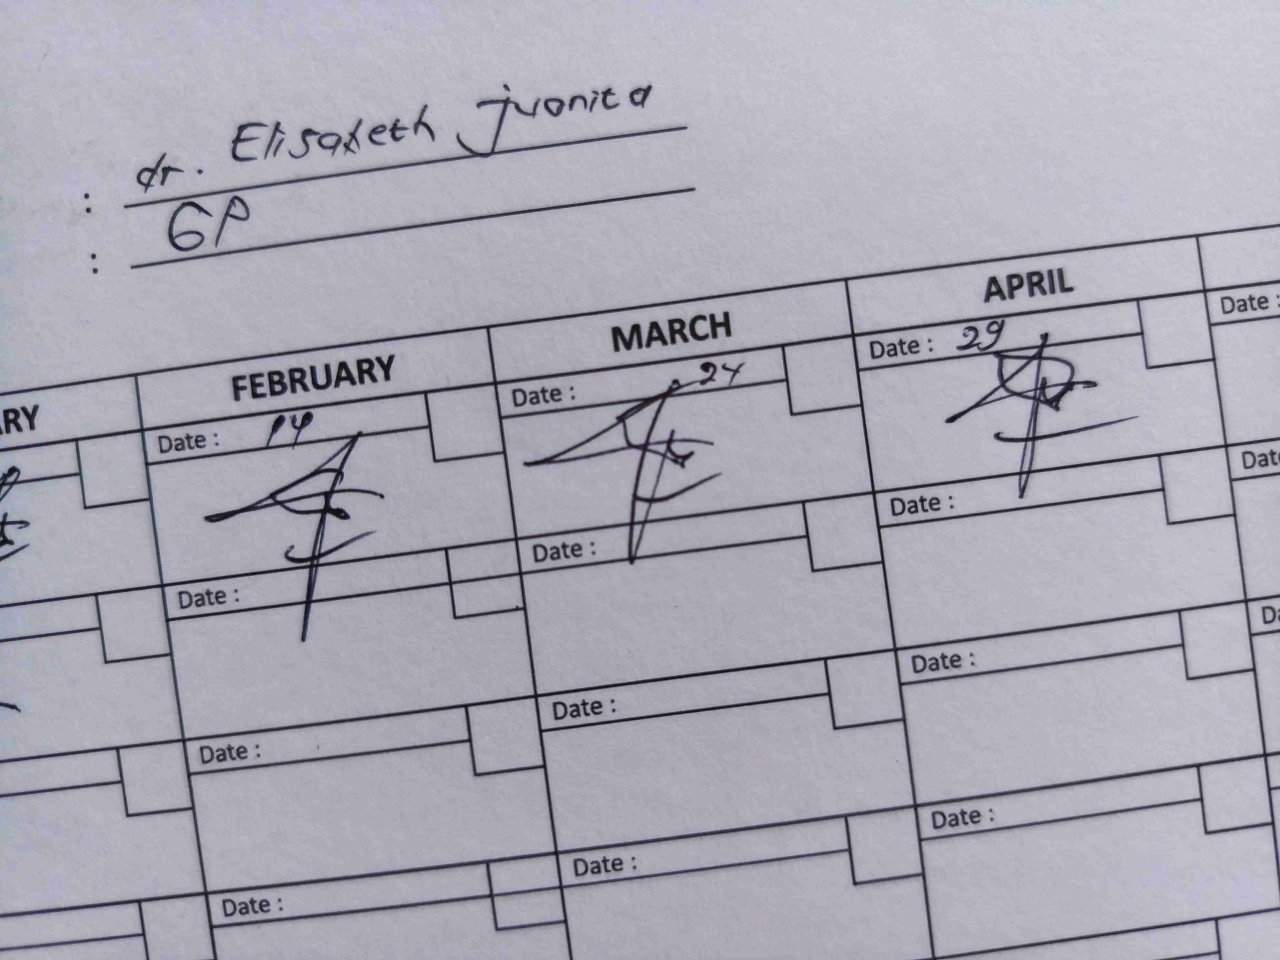 : dr. Elisabeth Juonita
: GP
RY FEBRUARY MARCH APRIL
Date : 14 Date : 24 Date : 29 Date :
Date : Date : Date : Dat
Date : Date : Date : Da
Date : Date : Date :